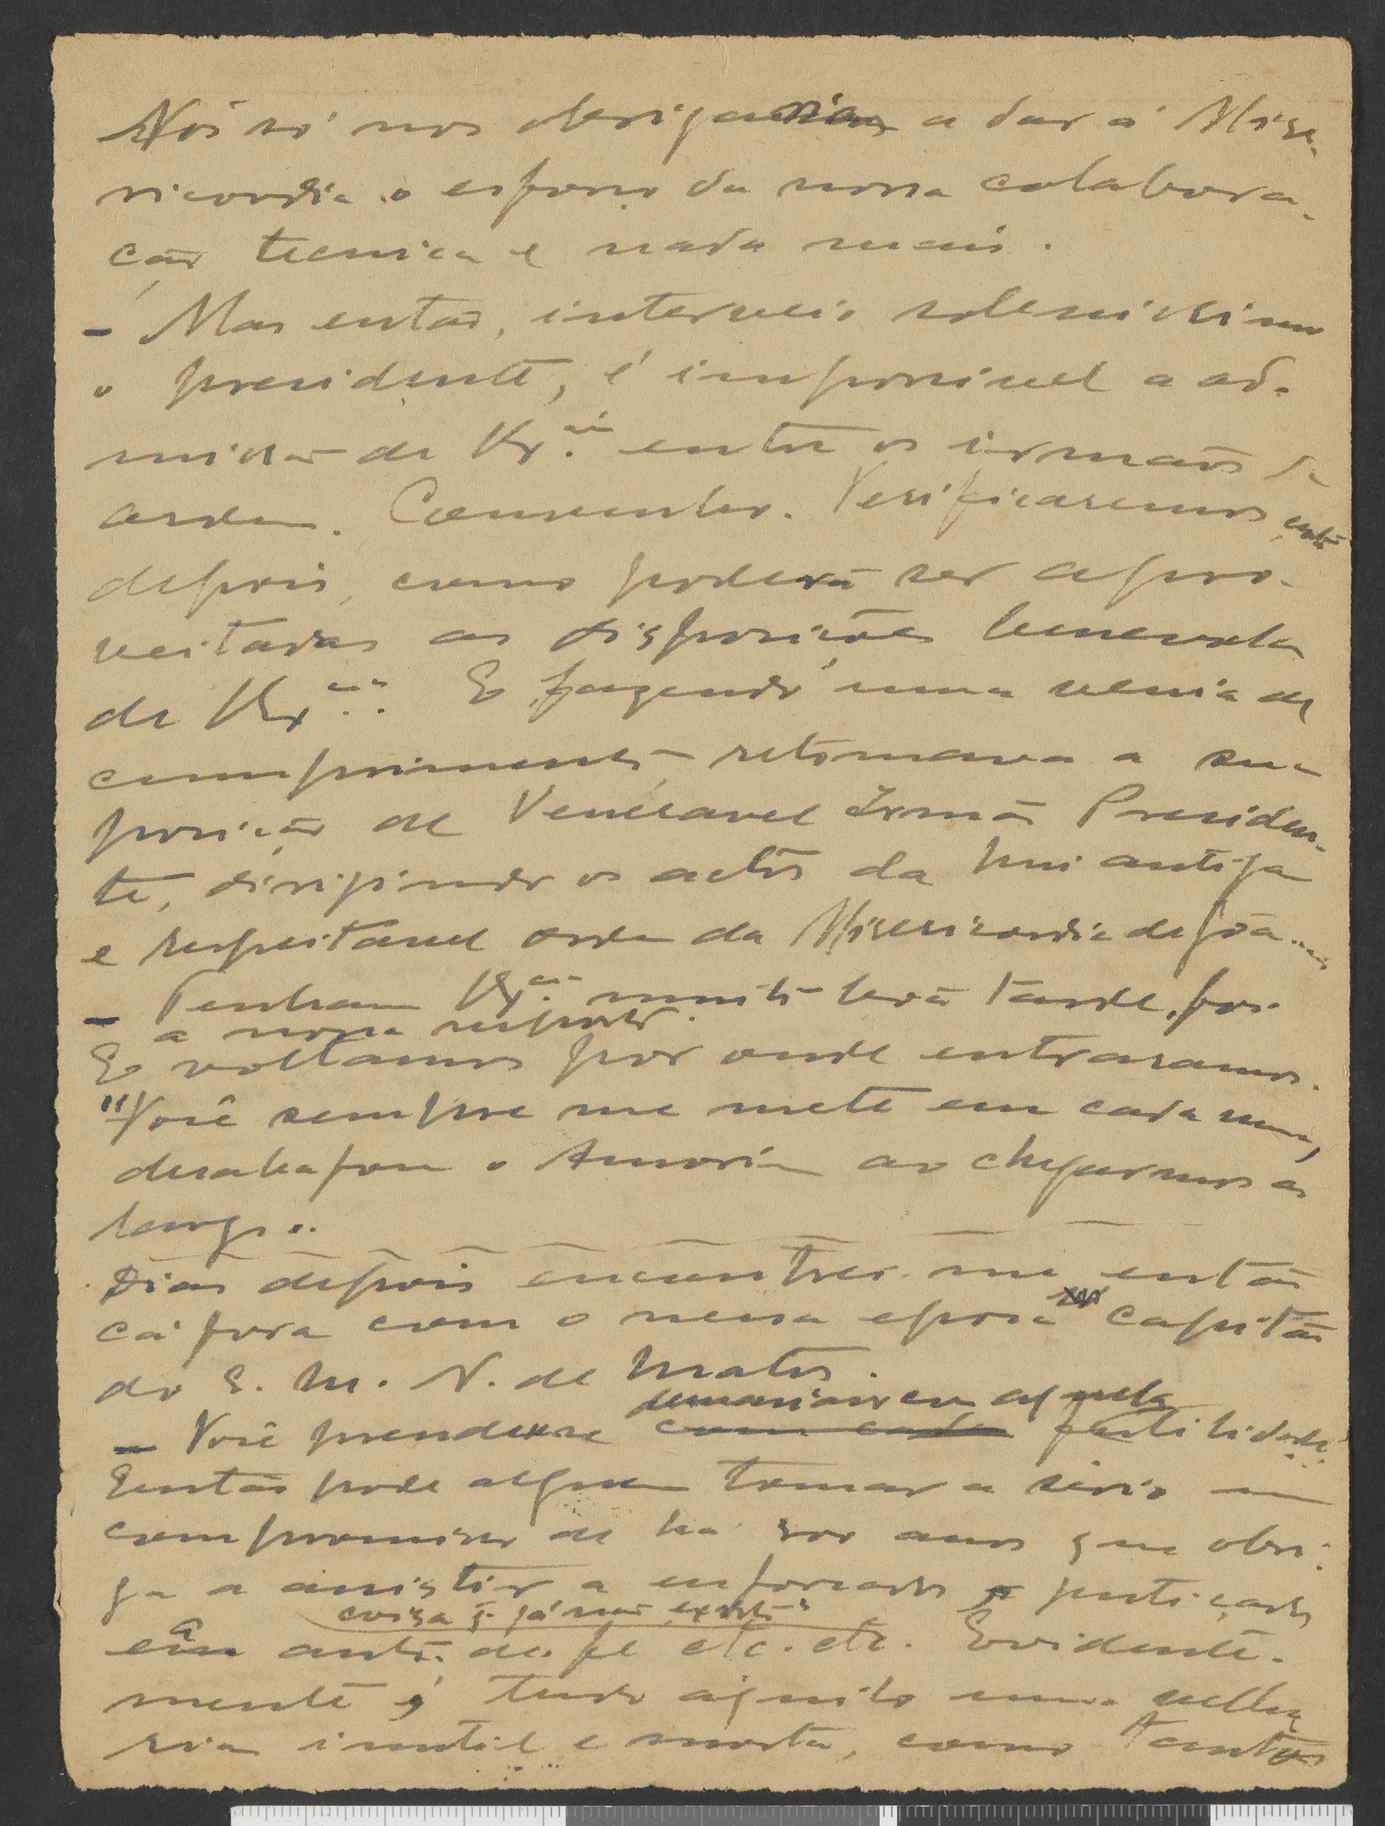 Nós só nos obrigariamos a dar á Mise-
ricordia o esforço da nossa colabora-
ção tecnica e nada mais.
– Mas então, interveio solenissimo
o presidente, é impossivel a ad-
missão de V. Ex.as entre os irmãos da
ordem. Consultar. Verificaremos então
depois, como poderá ser apro-
veitadas as disposições benevolas
de V. Ex.as. E fazendo uma venia de
cumprimento retomava a sua
posição de Veneravel Irmão Presiden-
te, dirigindo os actos da mui antiga
e respeitavel ordem da Misericordia de Goa....
– Tenham V. Ex.as muito boa tarde, foi
a nossa resposta.
E voltamos por onde entraramos.
"Você sempre me mete em cada uma,
desabafou o Amorim ao chegarmos ao
largo..
Dias depois encontrei-me então
cá fora com o nessa epoca capitão
do E. M. N. de Matos.
– Você prende-se demasiado em aquela futilidade..
Então pode alguem tomar a sério um
compromisso de ha 400 anos que obri-
ga a assistir a enforcados justiçados
coisa q. já não existe
em auto de fé etc. etc. Evidente-
mente é tudo aquilo uma velha
ria inutil e morta, como tantas